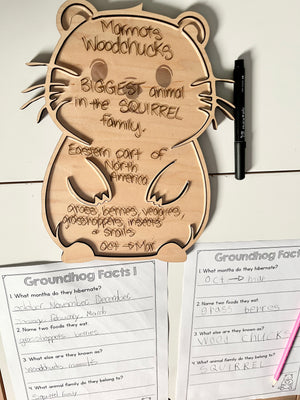 Marmots
Woodchucks
- BIGGEST animal
in the SQUIRREL
family.
Eastern part of
North
America
grass, berries, veggies,
grasshoppers, insects
& snails
Oct → Mar
Groundhog Facts!
1. What months do they hibernate?
October November, December,
January, February, March
2. Name two foods they eat.
grasshoppers berries
3. What else are they known as?
Woodchucks marmots
4. What animal family do they belong to?
Squirrel family
Groundhog Facts!
1. What months do they hibernate?
Oct → mar
2. Name two foods they eat.
grass berries
3. What else are they known as?
Wood chucks
4. What animal family do they belong to?
SQUIRREL